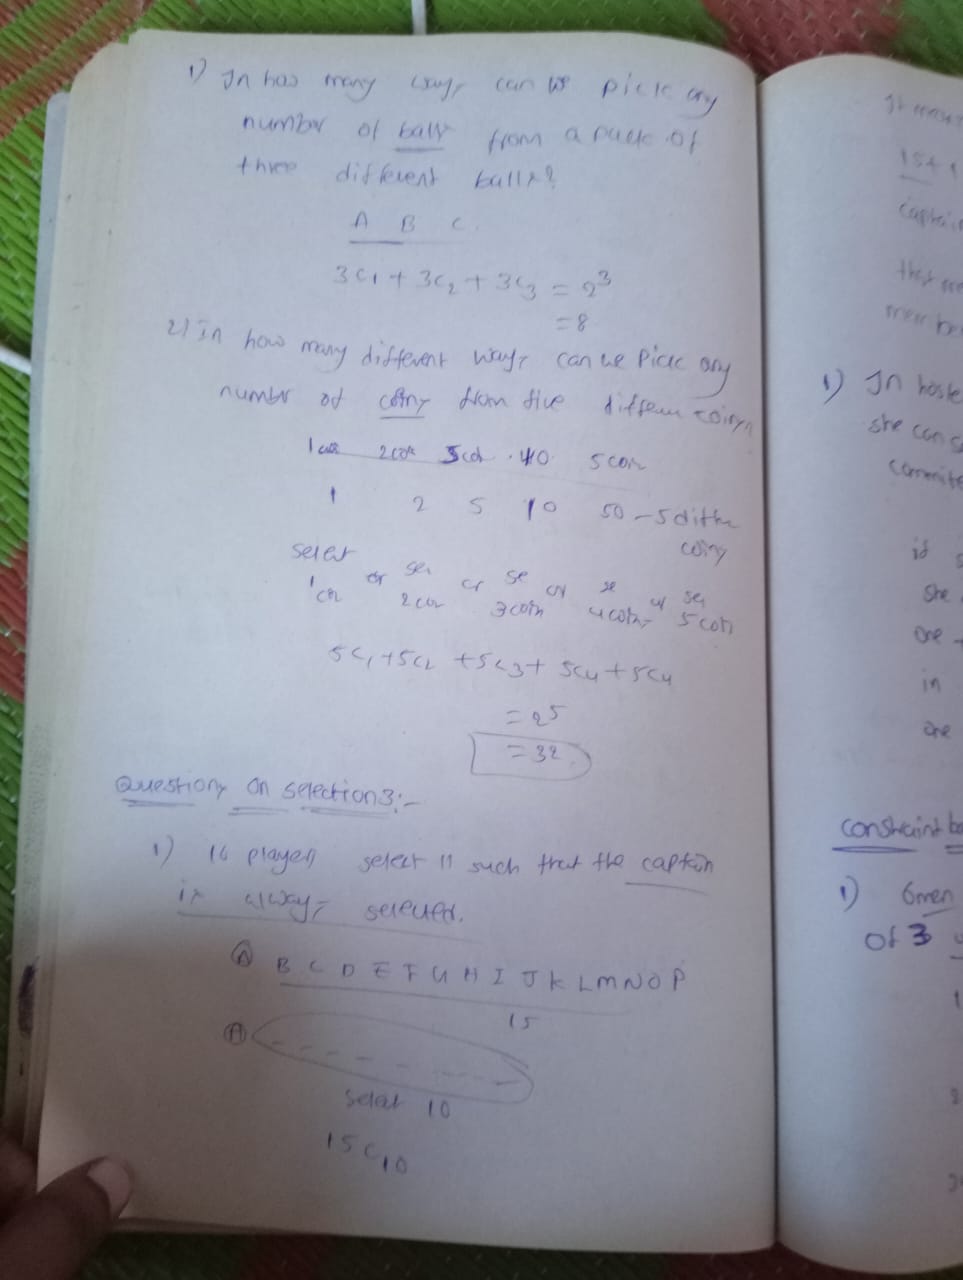 1) In how many ways can we pick any
number of balls from a pack of
three different balls?
A B C.
3C1 + 3C2 + 3C3 = 2^3
= 8
2) In how many different ways can we pick any
number of coins from five different coins
2 coin 5 coin
1 2 5 10 50 - 5
coins
select
or or or or
2 coin 3 coin 4 coin 5 coin
5C1 + 5C2 + 5C3 + 5C4 + 5C4
= 2^5
= 32.
Questions on selections:-
1) 16 players select 11 such that the captain
is always selected.
A B C D E F G H I J K L M N O P
15
A
Select 10
15C10
15
captain
member
1) In
she can
if
she
one
in
one
constraint
1) 6 men
of 3